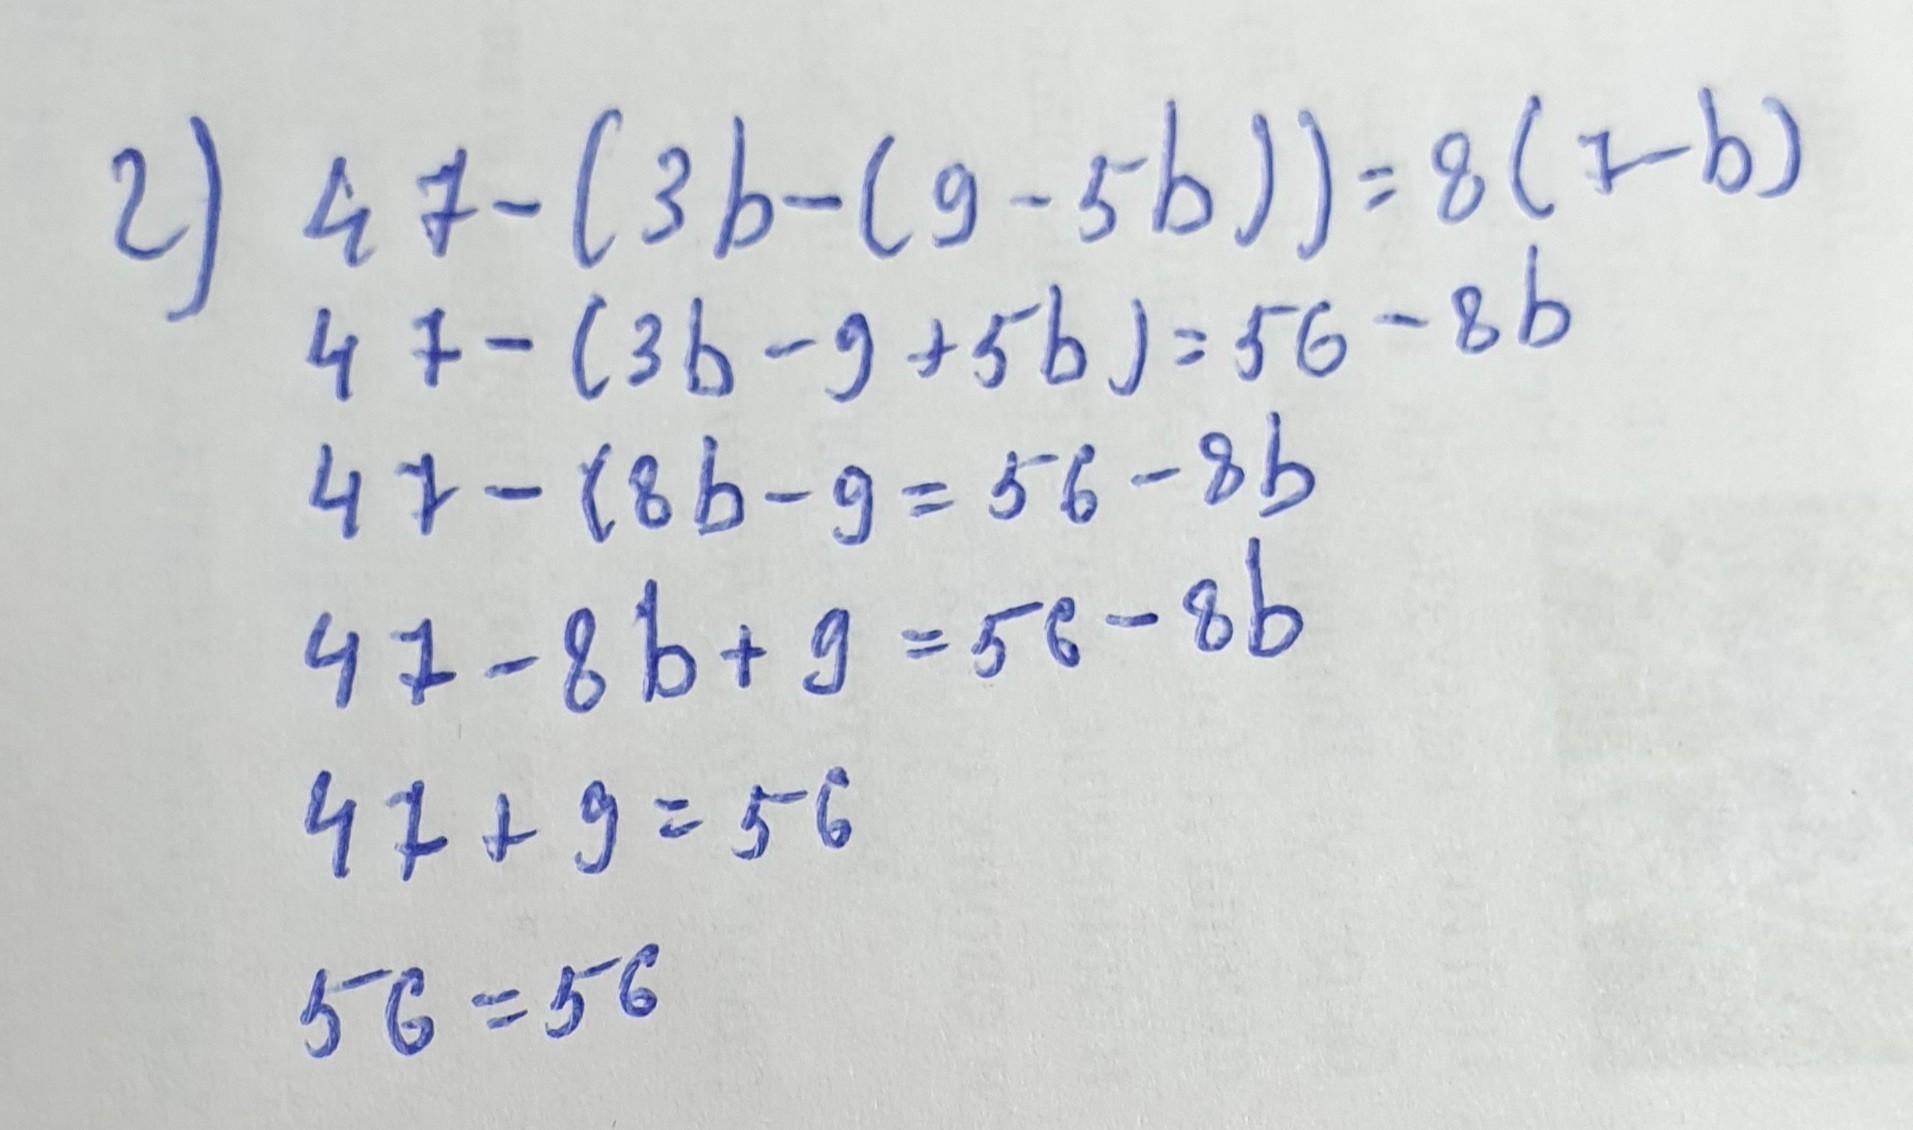 2) 47-(3b-(9-5b))=8(7-b)
47-(3b-9+5b)=56-8b
47-(8b-9=56-8b
47-8b+9=56-8b
47+9=56
56=56